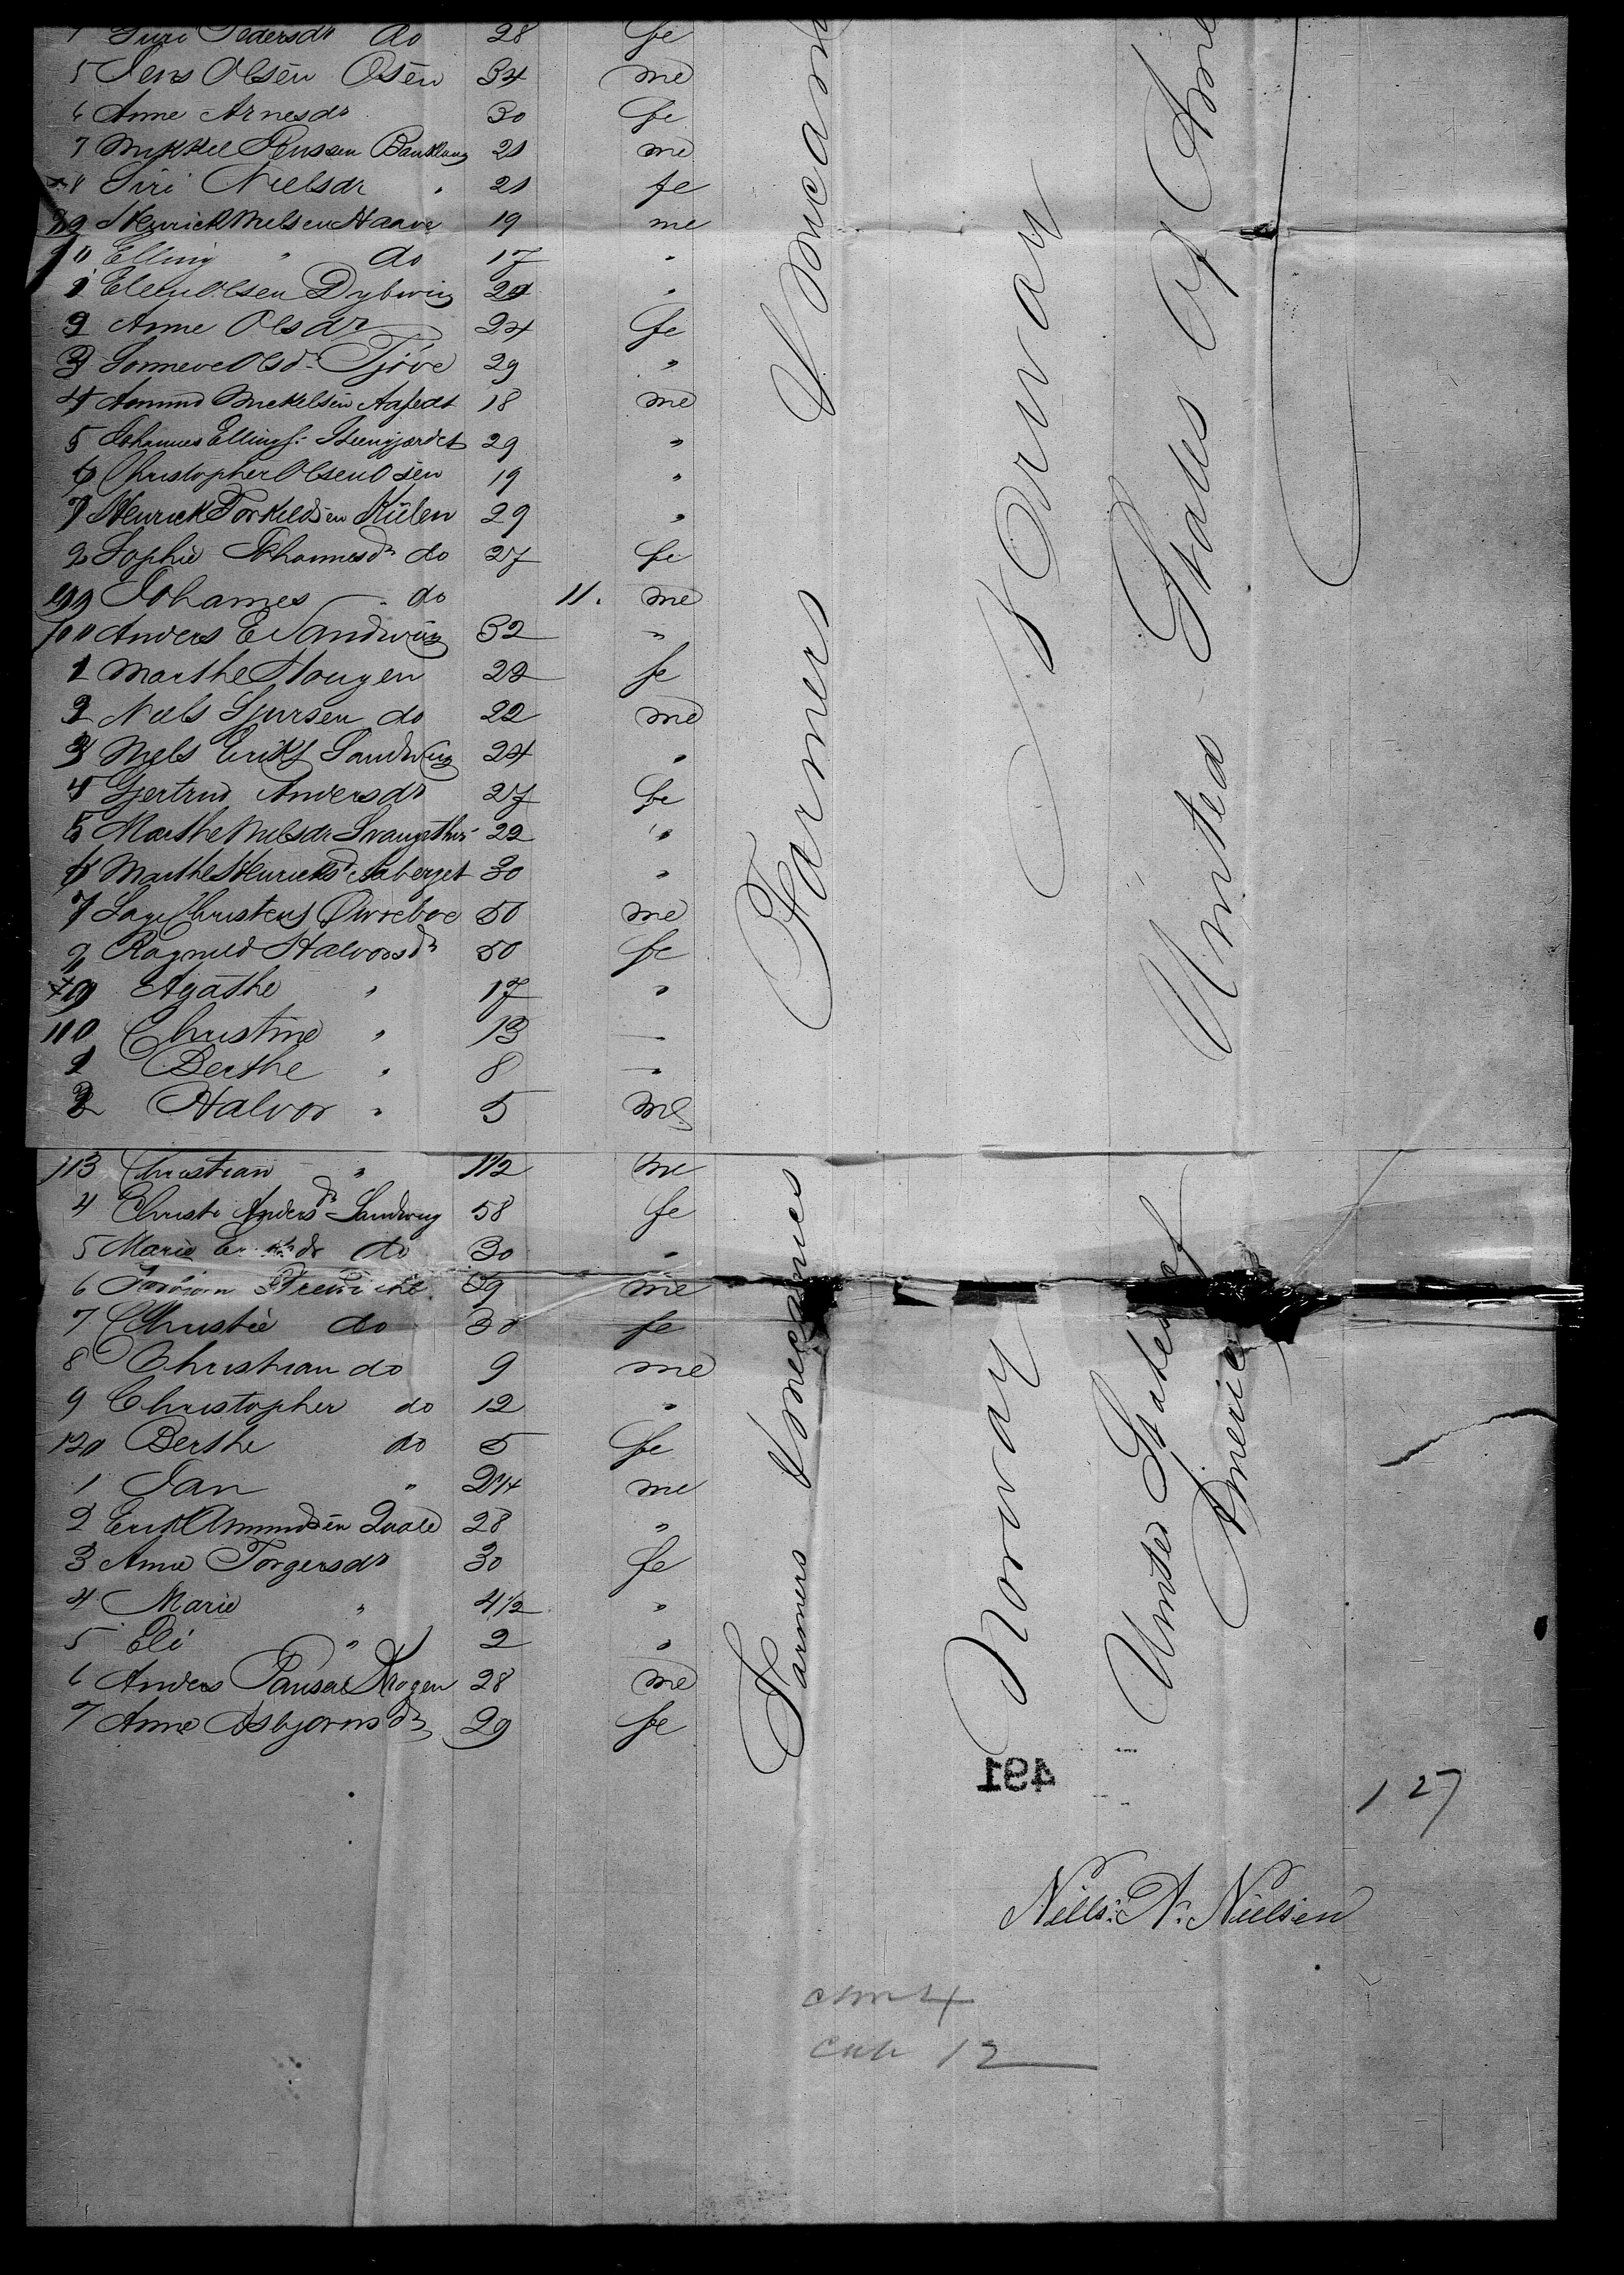 Pedersdr do 28 fe
5 Jens Olsen Osen 34 me
6 Anne Arnesdr 30 fe
7 Mikkel 21 me
8 Siri Nielsdr " 21 fe
89 Henrick Nielsen Haave 19 me
90 Elling " do 17 "
1 Olsen Dybwig "
2 Anne Olsdr 24 fe
3 Sonneve Olsd: Tjöve 29 "
4 Amund Mickelsen Aafedt 18 me
5 Johannes Ellings: 29 "
6 Christopher Olsen Osen 19 "
7 Henrick Torkeldsen Külen 29 "
8 Sophie Johannesdr do 27 fe
99 Johannes " do 11. me
100 Anders E Sandwiig 32 "
1 Marthe Hougen 22 fe
2 Niels Sjursen do 22 me
3 Niels Eriks Sandwiig 24 "
4 Gjertrud Andersdr 27 fe
5 Marthe Nielsdr 22 "
6 Marthe Henricksd Aaberget 30 "
7 Christens Öwreboe 50 me
8 Ragnild Halvorsdr 50 fe
109 Agathe " 17 "
110 Christine " 13 "
1 Berthe " 8 "
2 Halvor " 5 me
113 Christian " 1 1/2 me
4 Christi Andersdr Sandwig 58 fe
5 Marie do 30 "
6 39 me
7 Christie do 30 fe
8 Christian do 9 me
9 Christopher do 12 "
120 Berthe do 5 fe
1 Jan " 2 1/4 me
2 Erik Amundsen Qvale 28 "
3 Anne Torgersdr 30 fe
4 Marie " 4 1/2 "
5 Eli " 2 "
6 Anders Krogen 28 me
7 Anne Asbjornsdr 29 fe
Farmers & Mecan
Norway
United States of Ame
Farmers & Mecanics
Norway
United States of
America
491
127
Niells: N. Nielsen
12